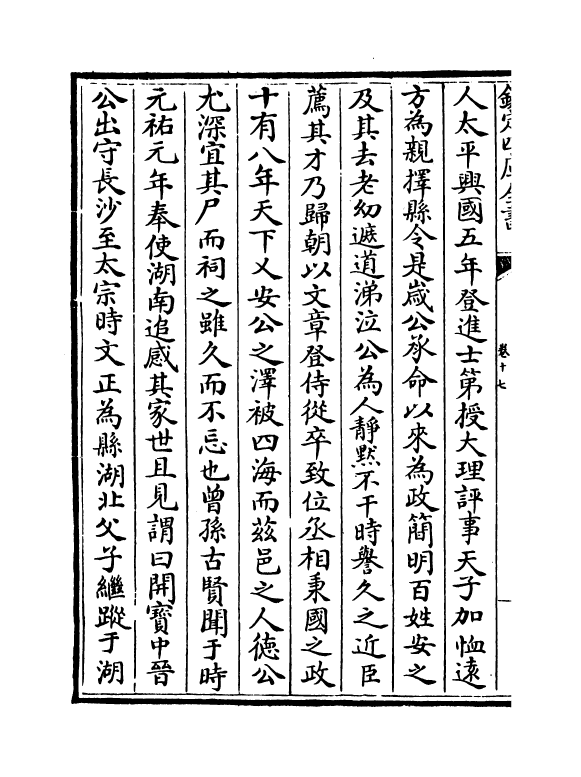 欽定四庫全書
卷十七
人太平興國五年登進士第授大理評事天子加恤遠
方為親擇縣令是歲公承命以來為政簡明百姓安之
及其去老幼遮道涕泣公為人靜默不干時譽久之近臣
薦其才乃歸朝以文章登侍從卒致位丞相秉國之政
十有八年天下乂安公之澤被四海而茲邑之人德公
尤深宜其尸而祠之雖久而不忘也曾孫古賢聞于時
元祐元年奉使湖南追感其家世且見謂曰開寶中晉
公出守長沙至太宗時文正為縣湖北父子繼蹤于湖